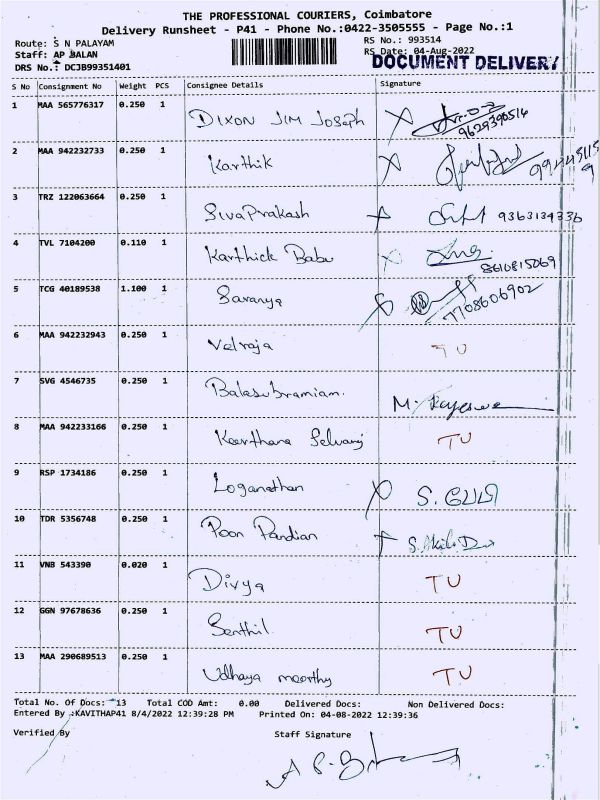 THE PROFESSIONAL COURIERS, Coimbatore
Delivery Runsheet - P41 - Phone No.:0422-3505555 - Page No.:1
Route: S N PALAYAM RS No.: 993514
Staff: AP BALAN RS Date: 04-Aug-2022
DRS No.: DCJB99351401 DOCUMENT DELIVERY
S No Consignment No Weight PCS Consignee Details Signature
1 MAA 565776317 0.250 1 DIXON JIM JOSEPH
9629390514
2 MAA 942232733 0.250 1 Karthik
3 TRZ 122063664 0.250 1 SivaPrakash 9363134336
4 TVL 7104200 0.110 1 Karthick Babu
8610815069
5 TCG 40189538 1.100 1 Saranya
7708606902
6 MAA 942232943 0.250 1 Velraja TU
7 SVG 4546735 0.250 1 Balasubramiam.
8 MAA 942233166 0.250 1 Keerthana Selvaraj TU
9 RSP 1734186 0.250 1 Loganathan
10 TDR 5356748 0.250 1 Poon Pandian
11 VNB 543390 0.020 1 Divya TU
12 GGN 97678636 0.250 1 Senthil TU
13 MAA 290689513 0.250 1 Udhaya moorthy TU
Total No. Of Docs: 13 Total COD Amt: 0.00 Delivered Docs: Non Delivered Docs:
Entered By :KAVITHAP41 8/4/2022 12:39:28 PM Printed On: 04-08-2022 12:39:36
Verified By Staff Signature